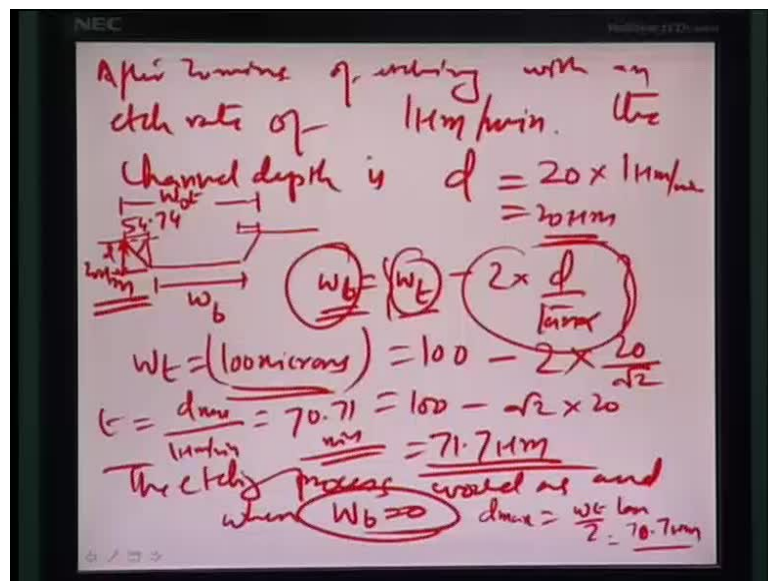 NEC
After 20 mins of etching with an
etch rate of 1μm/min. the
Channel depth is d = 20 × 1μm/min
= 20μm
Wt
54.74
d
20μm
Wb
Wb = Wt - 2 × d/tanα
Wt = (100 microns) = 100 - 2 × 20/√2
t = dmax/1μm/min = 70.71 min = 100 - √2 × 20
= 71.7μm
The etching process would end
when Wb = 0 dmax = Wt/2 tanα = 70.7μm